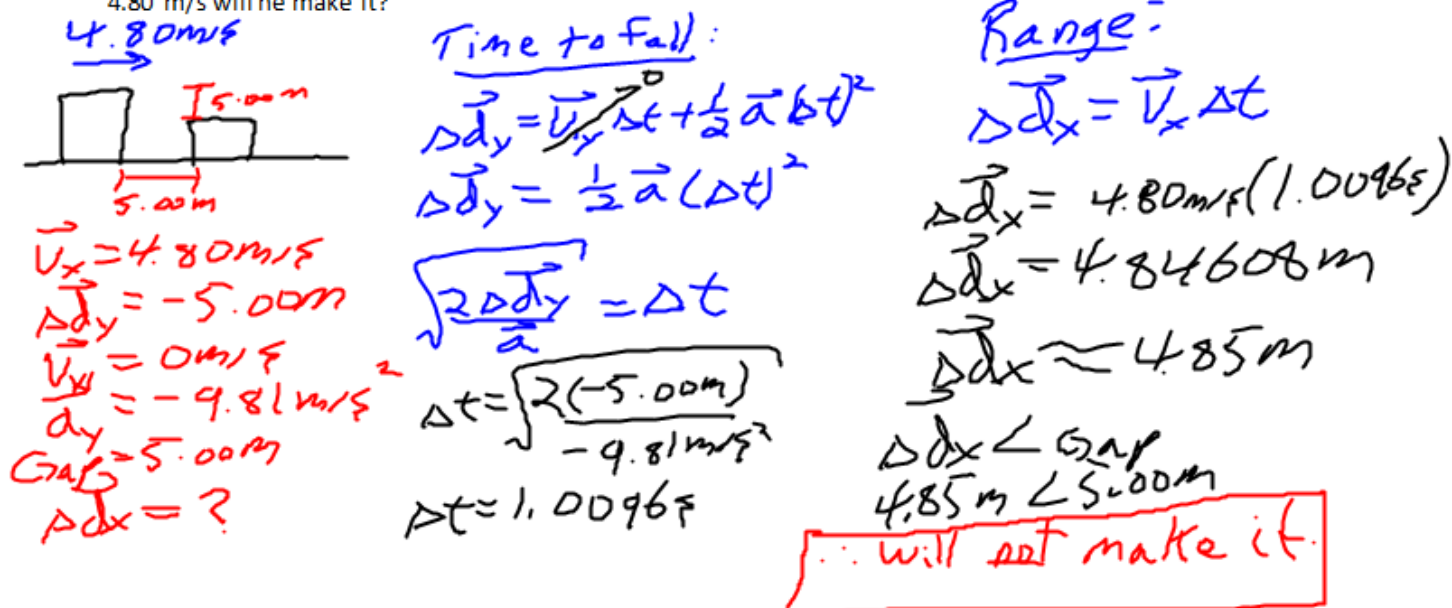 4.80 m/s will he make it?
4.80m/s
5.00m
5.00m
V⃗x = 4.80m/s
Δd⃗y = -5.00m
V⃗y = 0m/s
a⃗y = -9.81m/s²
Gap = 5.00m
Δd⃗x = ?
Time to fall:
Δd⃗y = V⃗y Δt + ½ a⃗ (Δt)²
0
Δd⃗y = ½ a⃗ (Δt)²
√(2Δd⃗y / a⃗) = Δt
Δt = √(2(-5.00m) / -9.81m/s²)
Δt = 1.0096s
Range:
Δd⃗x = V⃗x Δt
Δd⃗x = 4.80m/s(1.0096s)
Δd⃗x = 4.84608m
Δd⃗x ≈ 4.85m
Δdx < Gap
4.85m < 5.00m
∴ will not make it.